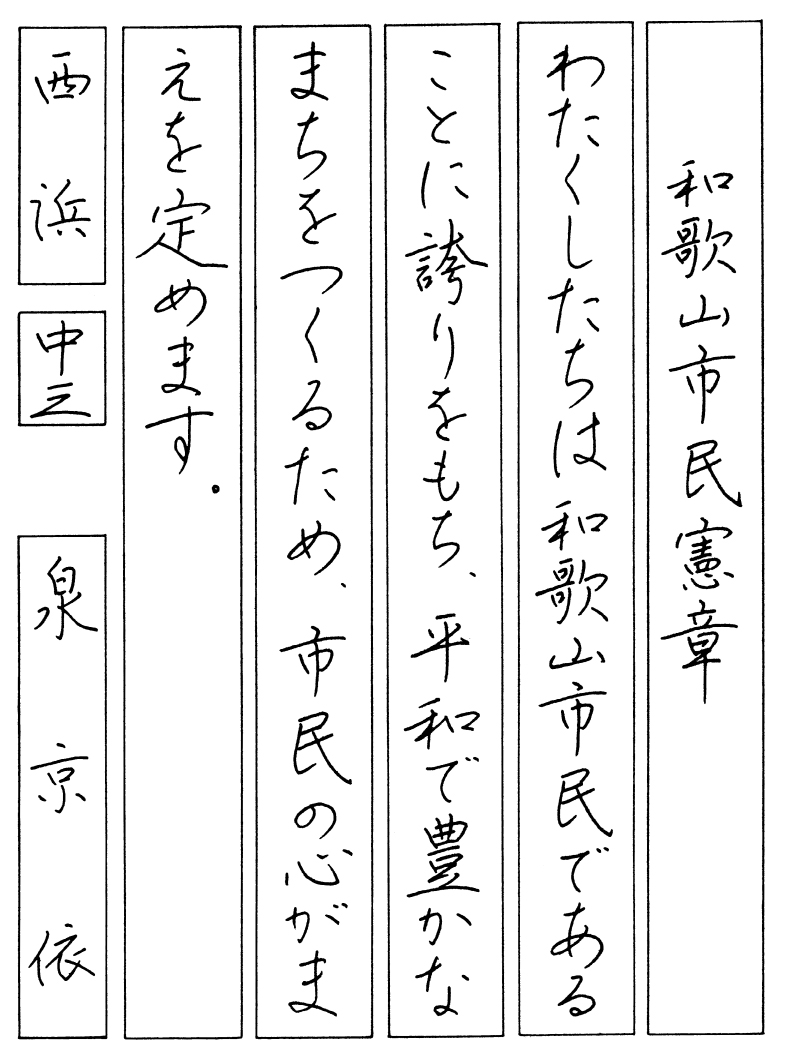 和歌山市民憲章
わたくしたちは和歌山市民である
ことに誇りをもち、平和で豊かな
まちをつくるため、市民の心がま
えを定めます。
西浜
中三
泉京依